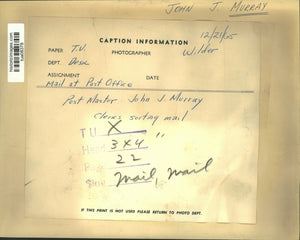 JOHN J. MURRAY
CAPTION INFORMATION
12/21/65
PAPER T.U. PHOTOGRAPHER Wilder
DEPT. Desk
ASSIGNMENT DATE
Mail at Post Office
Post Master John J. Murray
Clerks sorting mail
T U X
3x4 "
22
Mail, Mail
IF THIS PRINT IS NOT USED PLEASE RETURN TO PHOTO DEPT.
historicimages.com